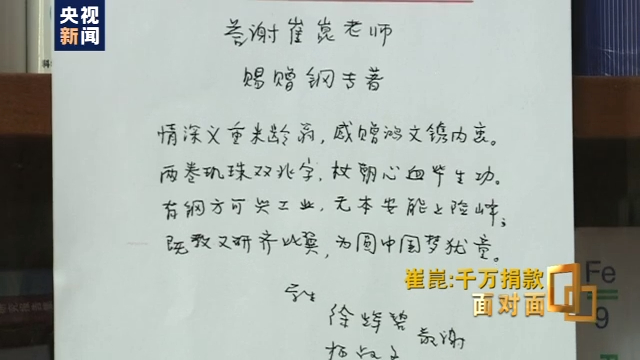 央视
新闻
答谢崔崑老师
赐赠钢专著
情深义重米龄翁，感赠鸿文镌内衷。
两卷玑珠双兆字，杖朝心血毕生功。
有钢方可兴工业，无本安能上险峰；
既教又研齐比翼，为圆中国梦犹童。
学生
徐辉碧 敬谢
杨叔子
崔崑:千万捐款
面对面
Fe
9